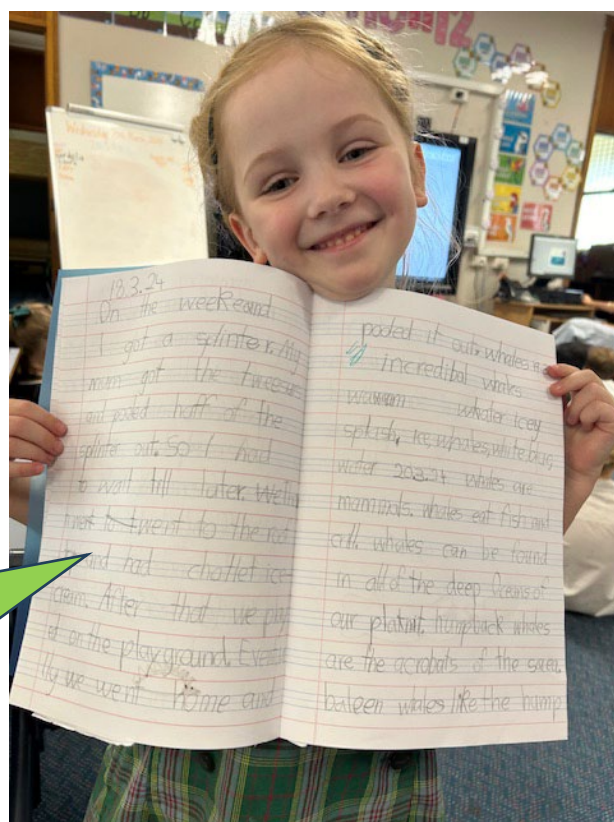 18.3.24
On the weekeand
I got a splinter. My
mum got the tweesers
and poded half of the
splinter out. So I had
to wait till later. We
went to the
and had choclet ice-
cream. After that we play
ed on the playground. Event
lly we went home and
poded it out. whales
incredibal
whaler icey
splash, ice, whales, white blue,
water 20.3.24 whales are
mammals. whales eat fish and
whales can be found
in all of the deep Oceans of
our planit. humpback whales
are the acrobats of the sea.
baleen whales like the hump